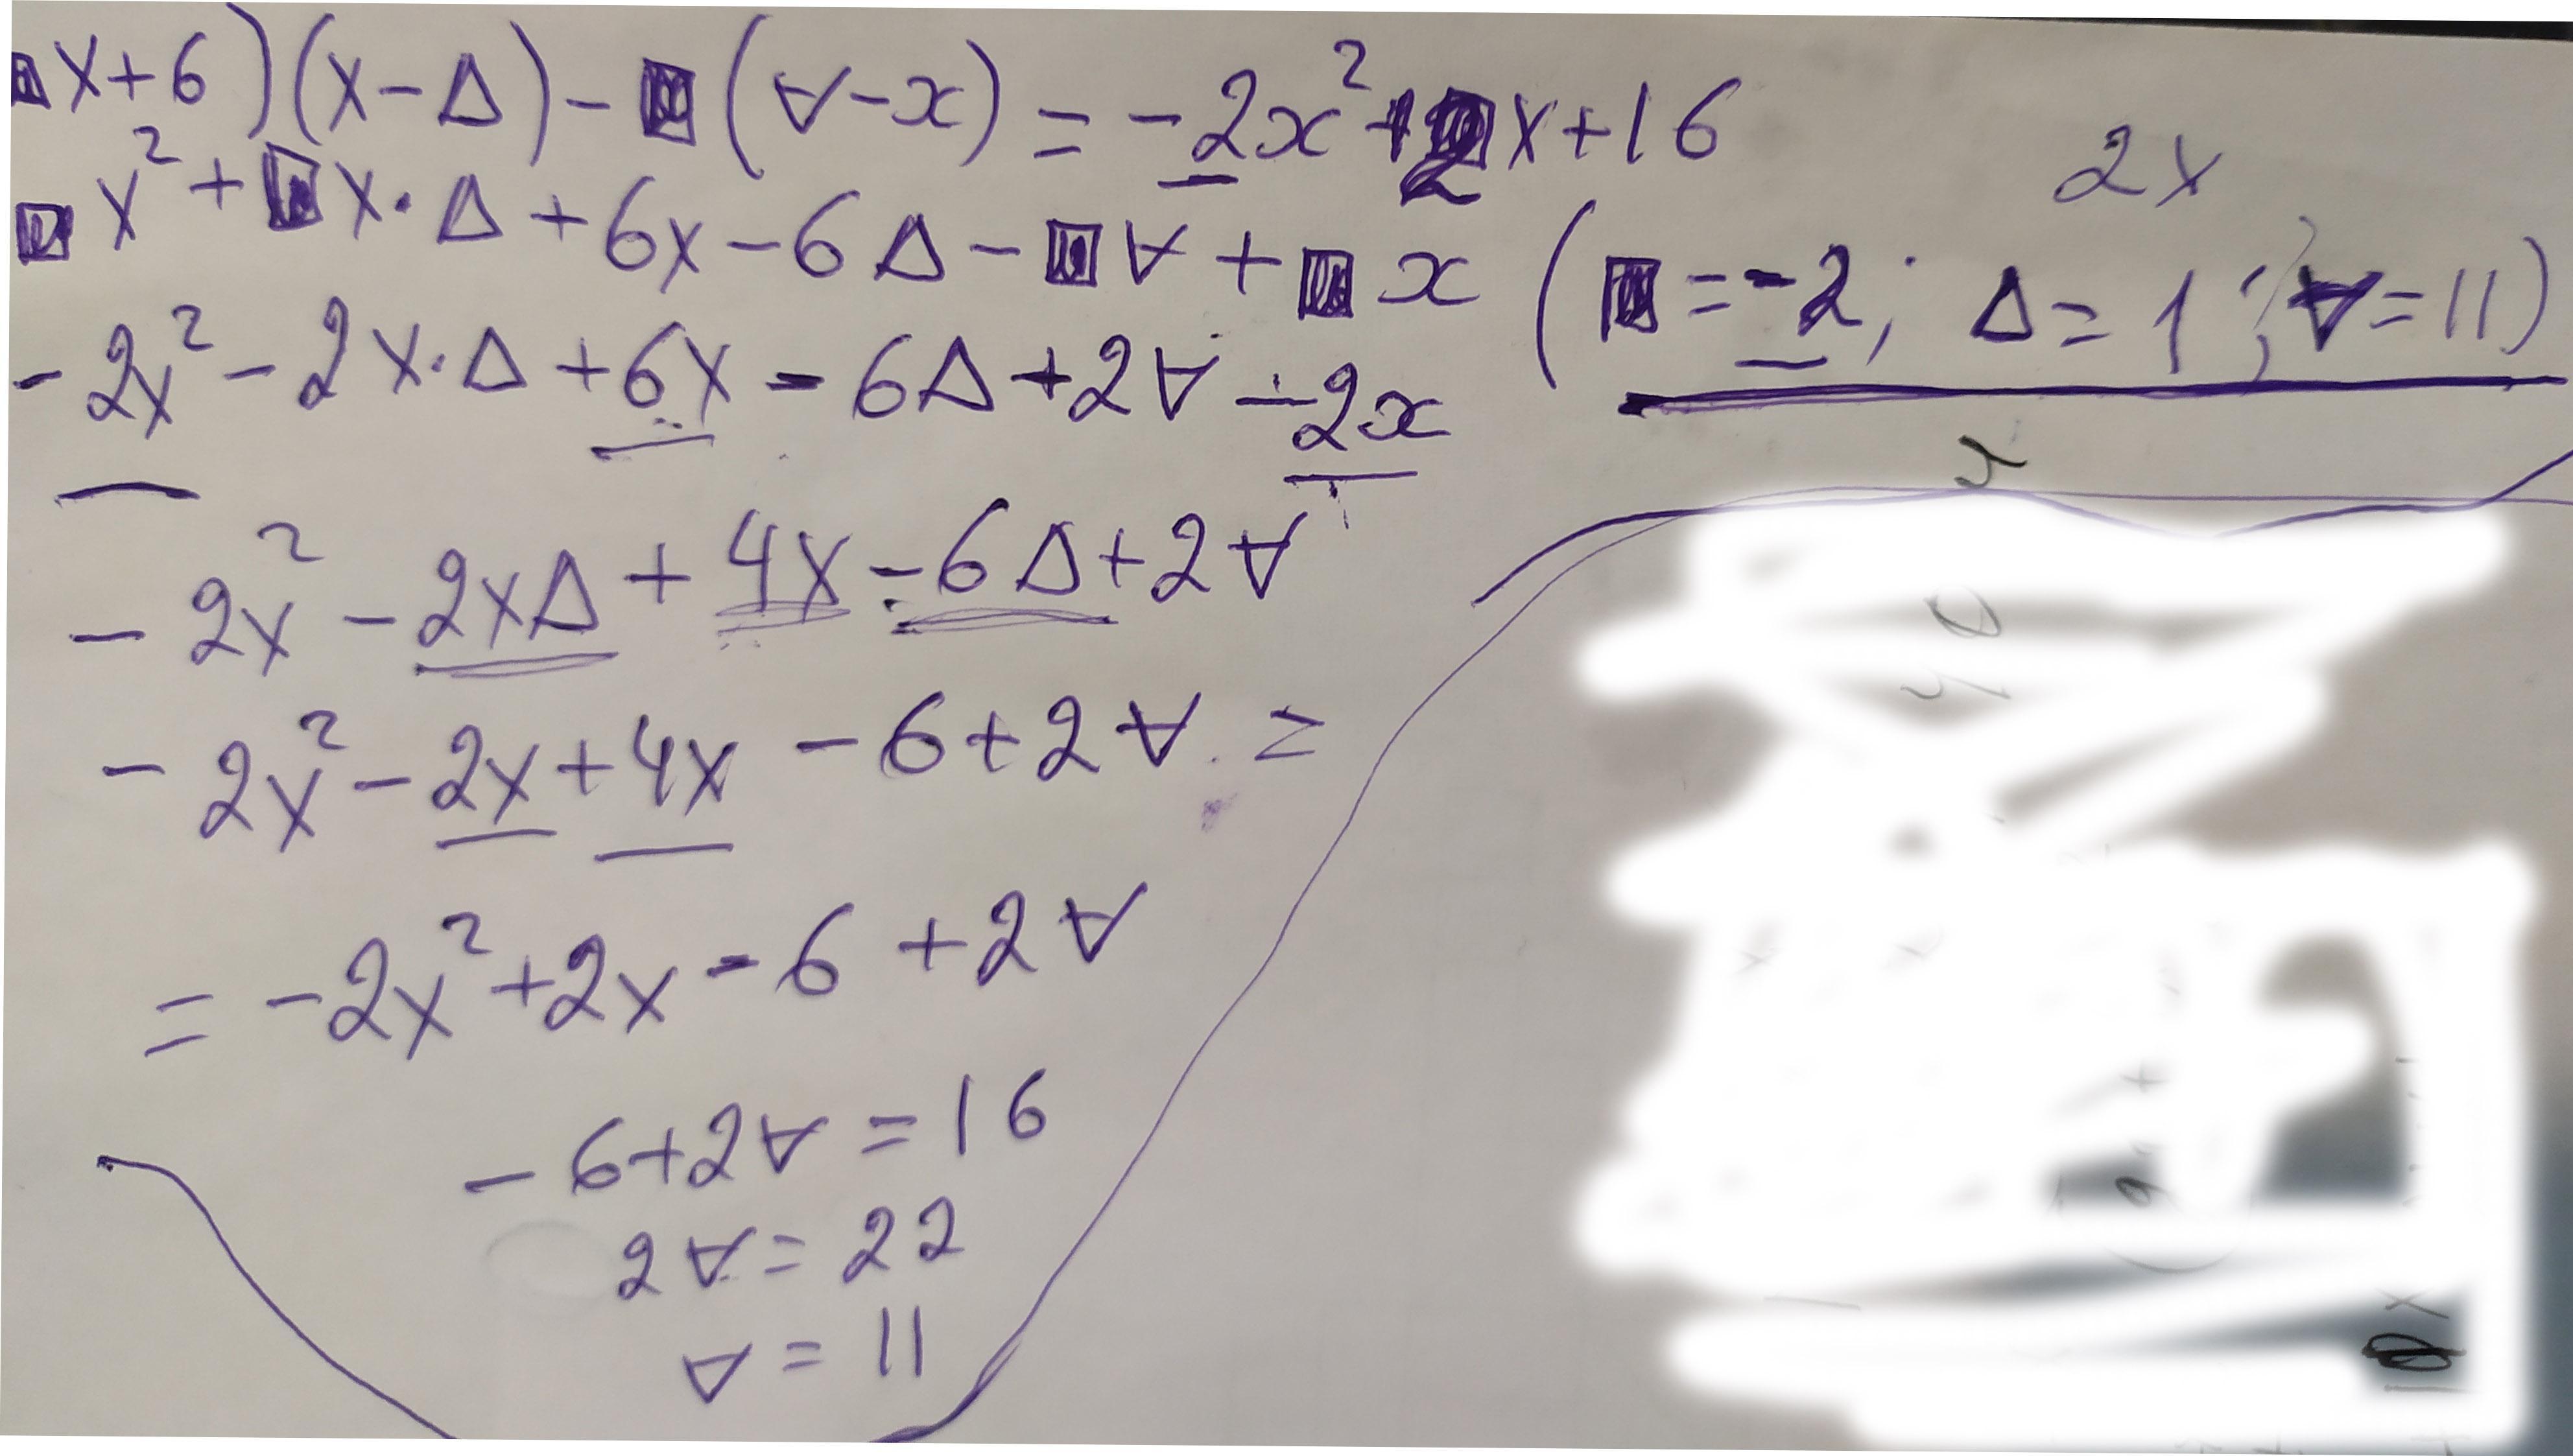 ■x+6)(x-Δ)-■(∀-x)=-2x²+2x+16
2x
■x²+■x·Δ+6x-6Δ-■∀+■x (■=-2; Δ=1; ∀=11)
-2x²-2x·Δ+6x-6Δ+2∀-2x
-2x²-2xΔ+4x-6Δ+2∀
-2x²-2x+4x-6+2∀=
=-2x²+2x-6+2∀
-6+2∀=16
2∀=22
∀=11